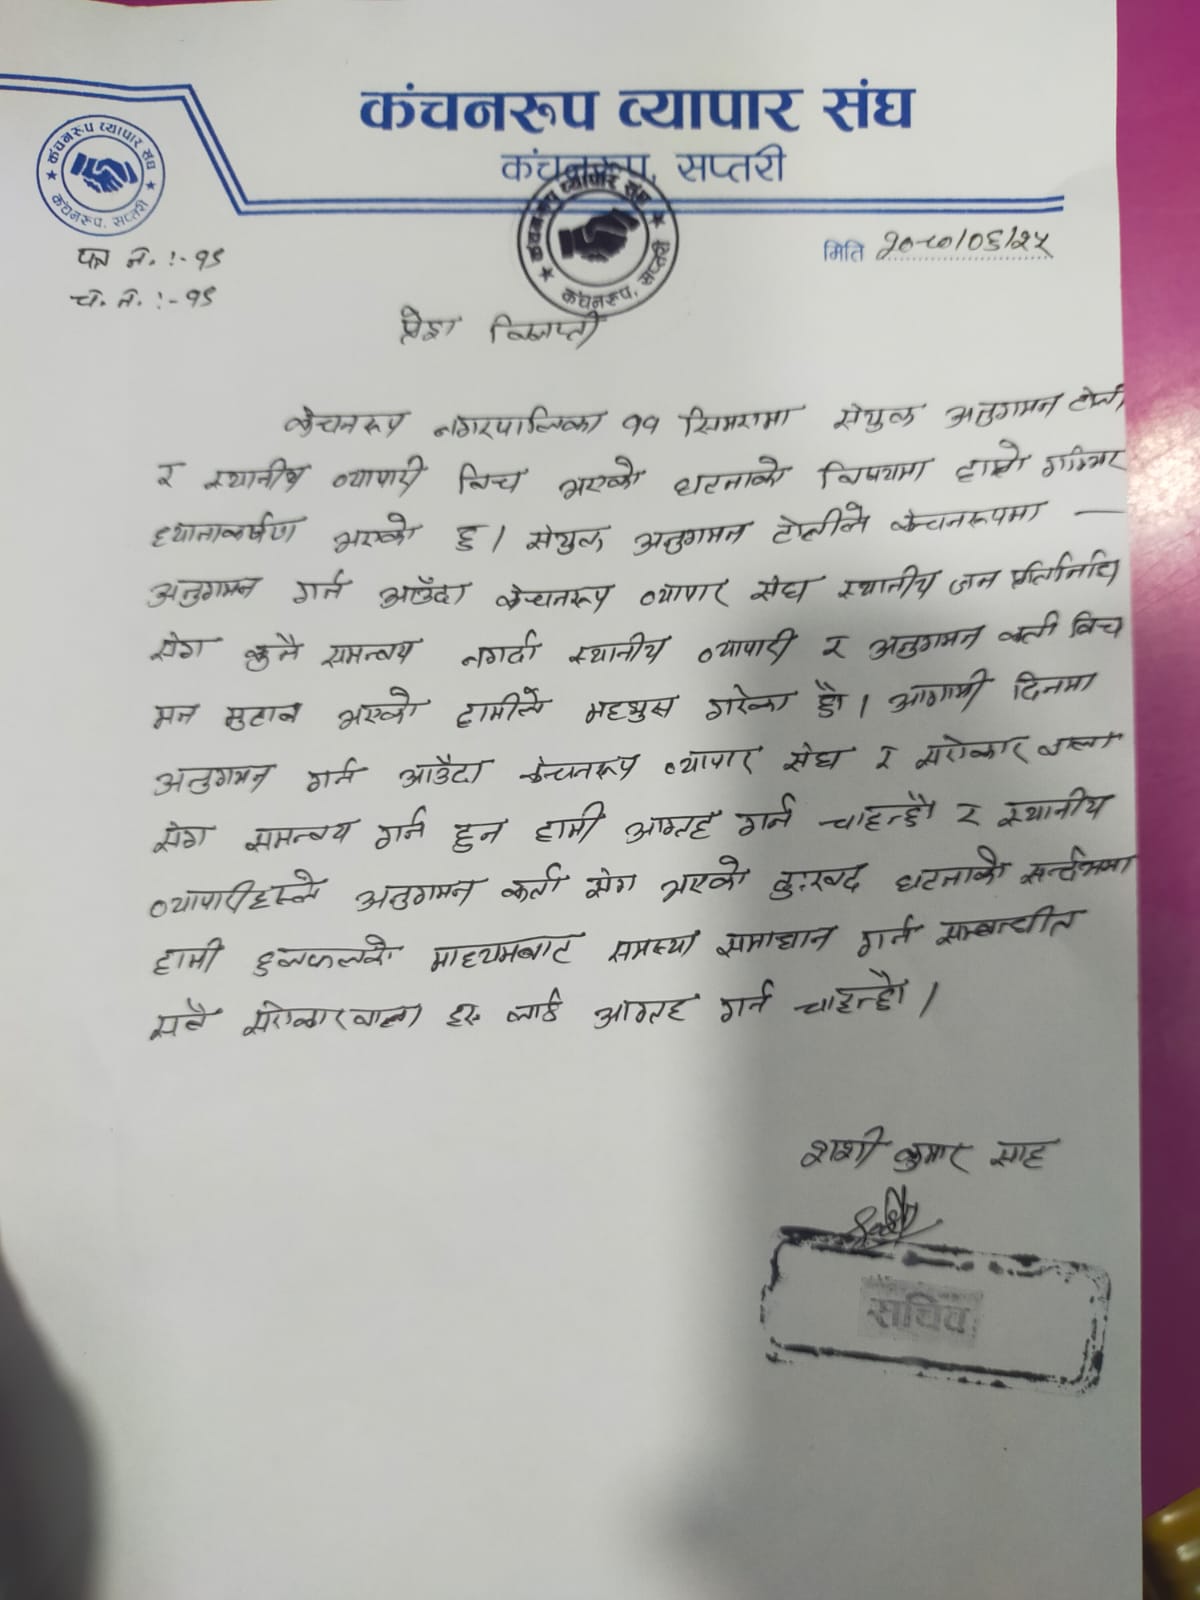 कंचनरुप व्यापार संघ
कंचनरुप, सप्तरी
कंचनरुप व्यापार संघ
कंचनरुप, सप्तरी
कंचनरुप व्यापार संघ
कंचनरुप, सप्तरी
पत्र नं. :- १९
च. नं. :- १९
मिति २०८०/०६/२५
प्रेश विज्ञप्ती
कंचनरुप नगरपालिका ११ सिमरामा संयुक्त अनुगमन टोली
र स्थानीय व्यापारी विच भएको घटनाको विषयमा हाम्रो गम्भिर
ध्यानाकर्षण भएको छ। संयुक्त अनुगमन टोलीले कंचनरुपमा —
अनुगमन गर्न आउँदा कंचनरुप व्यापार संघ स्थानीय जन प्रतिनिधि
संग कुनै समन्वय नगर्दा स्थानीय व्यापारी र अनुगमन कर्ता विच
मन मुटाव भएको हामीले महशुस गरेका छौ। आगामी दिनमा
अनुगमन गर्न आउँदा कंचनरुप व्यापार संघ र सरोकार वाला
संग समन्वय गर्न हुन हामी आग्रह गर्न चाहन्छौ र स्थानीय
व्यापारीहरुले अनुगमन कर्ता संग भएको दुःखद घटनाको सर्न्दभमा
हामी छलफलको माध्यमबाट समस्या समाधान गर्न सम्बन्धीत
सबै सरोकारवाला हरु लाई आग्रह गर्न चाहन्छौ।
शशी कुमार साह
सचिव